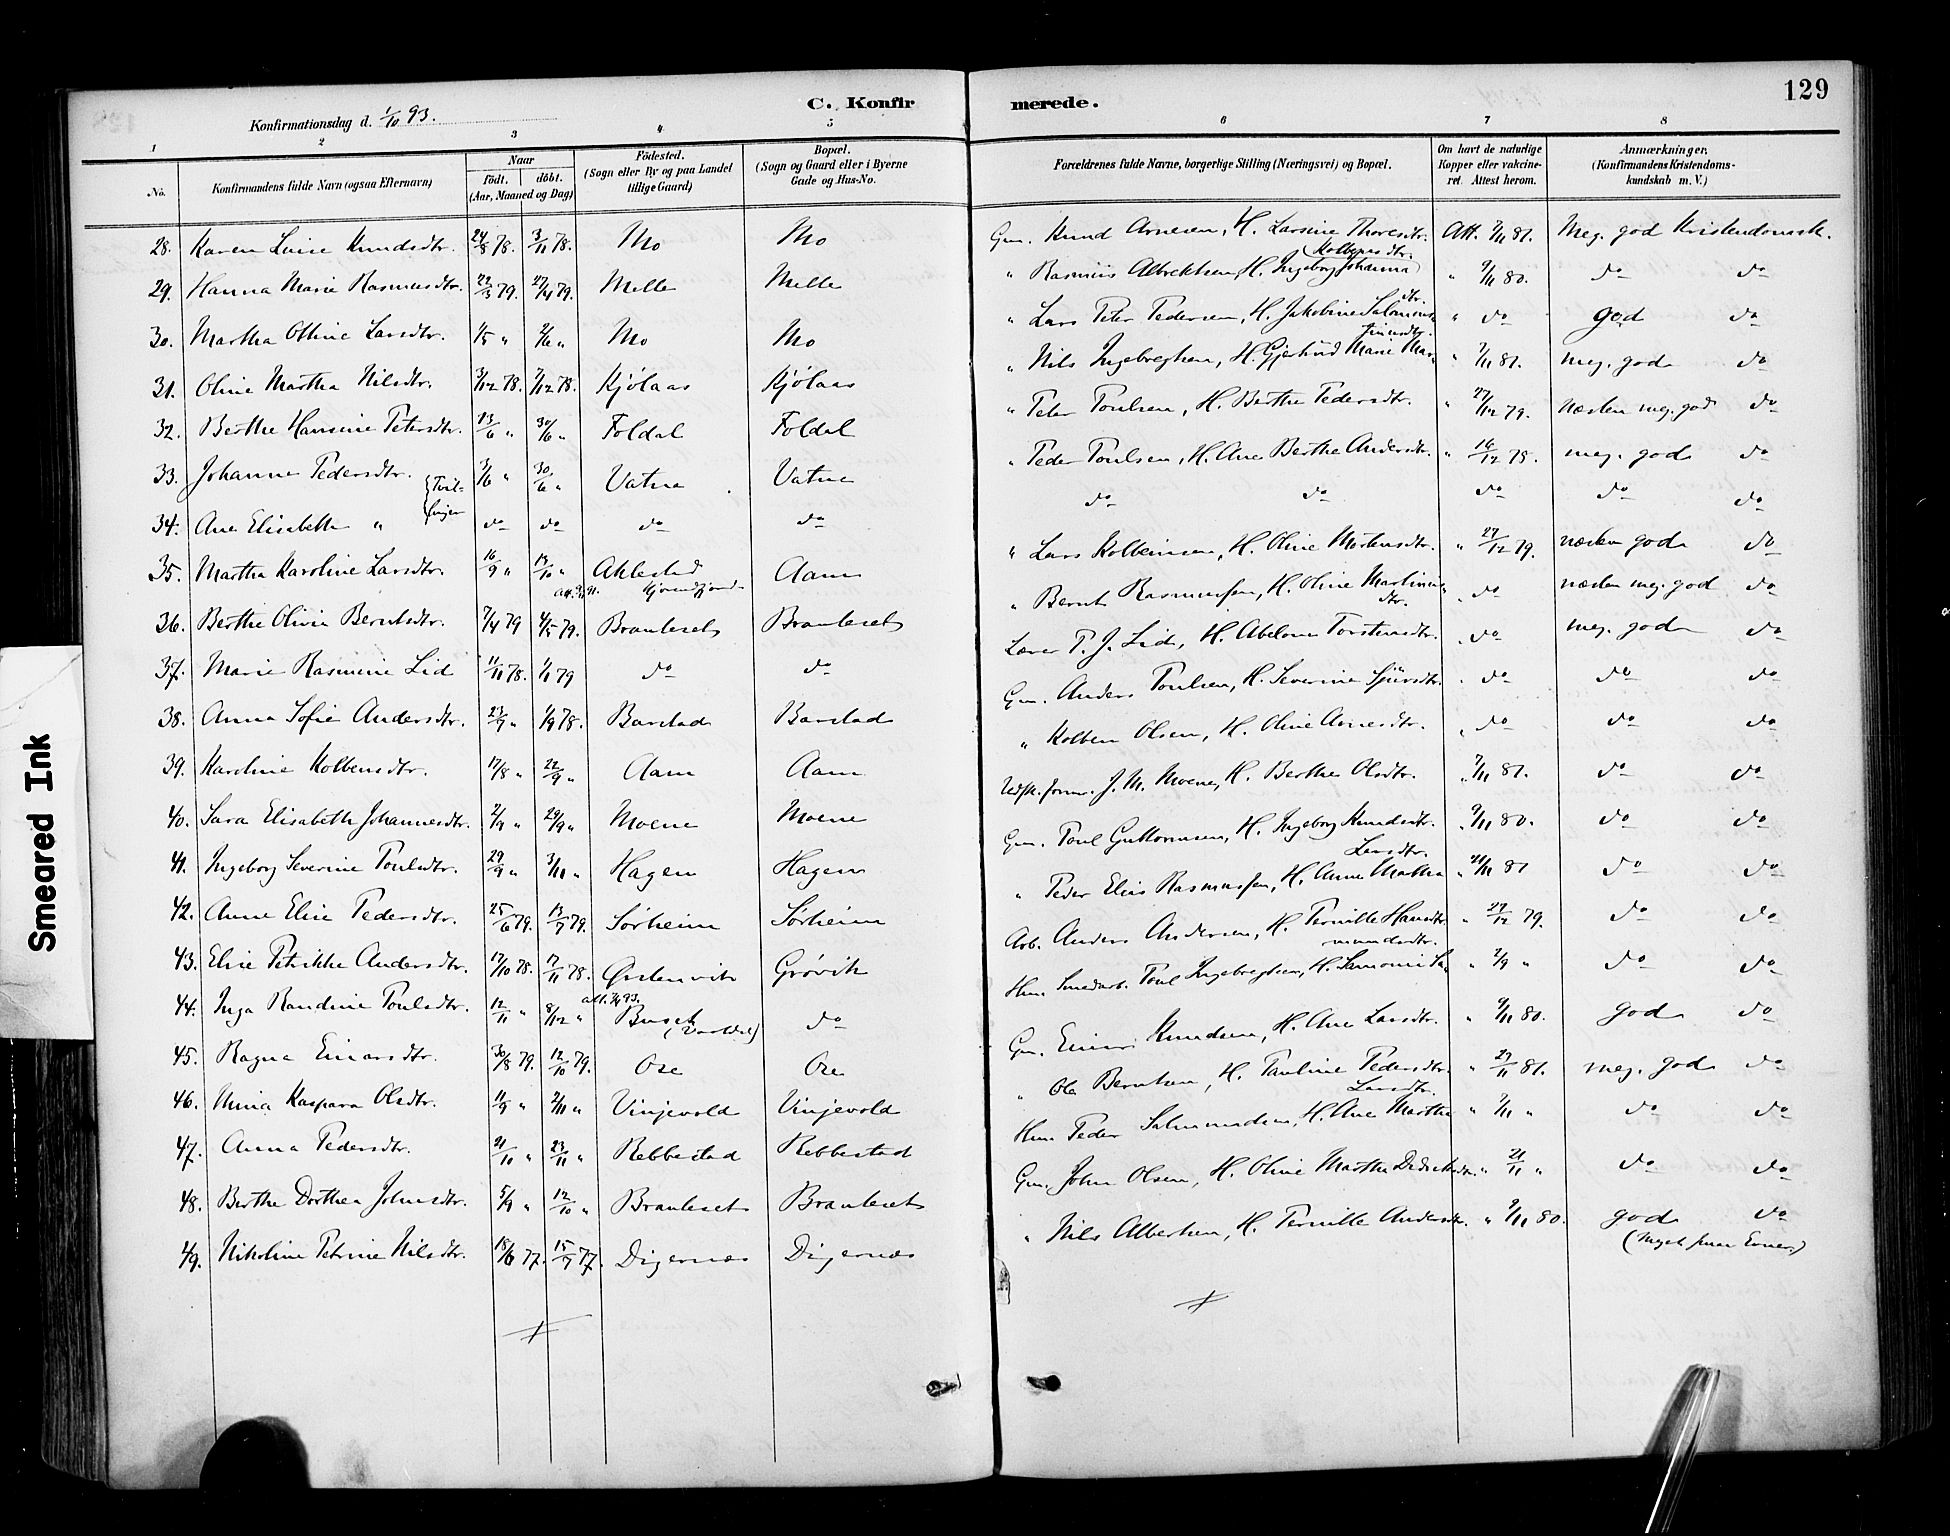 129
C. Konfirmerede.
Konfirmationsdag d. 1/10 93.
1 2 3 4 5 6 7 8
No. Konfirmandens fulde Navn (ogsaa Efternavn) Naar födt. döbt. (Aar, Maaned og Dag) Födested. (Sogn eller By og paa Landet tillige Gaard) Bopæl. (Sogn og Gaard eller i Byerne Gade og Hus-No. Forældrenes fulde Navne, borgerlige Stilling (Næringsvei) og Bopæl. Om havt de naturlige Kopper eller vakcineret. Attest herom. Anmærkninger, (Konfirmandens Kristendomskundskab m. V.)
28. Karen Luise Knudsdtr. 24/8 78. 3/11 78. Mo Mo Gm. Knud Arnesen, H. Larsine Thoresdtr. Att. 7/11 81. Meg. god Kristendomsk.
29. Hanna Marie Rasmusdtr. 22/3 79. 27/4 79. Melle Melle " Rasmus Albrektsen, H. Ingeborg Johanna Kolbensdtr. " 9/11 80. do do
30. Martha Oline Larsdtr. 1/5 " 2/6 " Mo Mo " Lars Peter Pedersen, H. Jakobine Salomonsdtr. " do god do
31. Oline Martha Nilsdtr. 3/12 78. 7/12 78. Kjölaas Kjölaas " Nils Ingebregtsen, H. Gjertrud Marie Martinusdtr. " 7/11 81. meg. god do
32. Berthe Hansine Petersdtr. 13/6 " 30/6 " Foldal Foldal " Peter Poulsen, H. Berthe Pedersdtr. " 27/12 79. næsten meg. god do
33. Johanne Pedersdtr. 3/6 " 30/6 " Vatne Vatne " Peder Poulsen, H. Ane Berthe Andersdtr. " 16/12 78. meg. god do
{Tvillinger
34. Ane Elisabeth " do do do do do do do do do
35. Martha Karoline Larsdtr. 16/9 " 13/10 " Aklestad Aam " Lars Kolbeinsen, H. Oline Mortensdtr. " 27/12 79. næsten god do
36. Berthe Olivia Berntsdtr. 7/4 79 4/5 79. Brauteset Brauteset " Bernt Rasmussen, H. Oline Martinusdtr. " do næsten meg. god do
37. Marie Rasmine Lid 11/11 78. 1/1 79 do do Lærer P. J. Lid, H. Abelone Torstensdtr. " do meg. god do
38. Anna Sofie Andersdtr. 23/9 " 1/9 78. Barstad Barstad Gm. Anders Poulsen, H. Severine Sjursdtr. " do do do
39. Karoline Kolbensdtr. 17/8 " 22/9 " Aam Aam " Kolben Olsen, H. Oline Arnesdtr. " do do do
40. Sara Elisabeth Johannesdtr. 2/9 " 29/9 " Moene Moene J. M. Moene, H. Berthe Olsdtr. " 7/11 81. do do
41. Ingeborg Severine Poulsdtr. 29/9 " 3/11 " Hagen Hagen Gm. Poul Guttormsen, H. Ingeborg Knudsdtr. " 9/11 80. do do
42. Anne Elise Pedersdtr. 25/6 79. 13/7 79. Sørheim Sørheim " Peder Elias Rasmussen, H. Anne Martha Larsdtr. " 21/11 81 do do
43. Elise Petrikke Andersdtr. 17/10 78. 17/11 78. Ørstenvik Grøvik Arb. Anders Andersen, H. Pernille Hansdtr. " 27/12 79. do do
44. Inga Randine Poulsdtr. 12/11 " 8/12 " Buset (Vartdal) do Hmd. Smedarb. Poul Ingebregtsen, H. " 2/9 " do do
45. Ragna Einarsdtr. 30/8 79. 12/10 79. Ose Ose Gm. Einar Knudsen, H. Ane Larsdtr. " 9/11 80. god do
46. Mina Kaspara Olsdtr. 11/9 " 2/11 " Vinjevold Vinjevold " Ole Berntsen, H. Pauline Pedersdtr. " 29/11 81. meg. god do
47. Anna Pedersdtr. 21/10 " 23/11 " Rebbestad Rebbestad Hmd. Peder Salmundsen, H. Ane Martha Larsdtr. " 7/11 " do do
48. Berthe Dorthea Johnsdtr. 5/9 " 12/10 " Brauteset Brauteset Gm. John Olsen, H. Oline Martha Didriksdtr. " 21/11 " do do
49. Nikoline Petrine Nilsdtr. 18/6 77. 15/7 77. Digernæs Digernæs " Nils Albertsen, H. Pernille Andersdtr. " 9/11 80. god do
(meget smaa Evner)
Smeared Ink